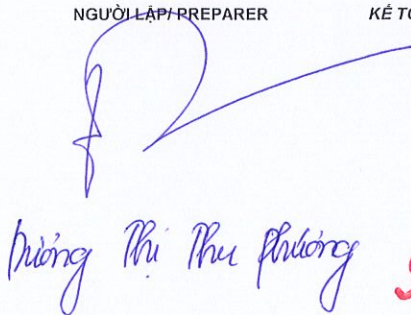 NGƯỜI LẬP/ PREPARER KẾ TO
Dương Thị Thu Phương